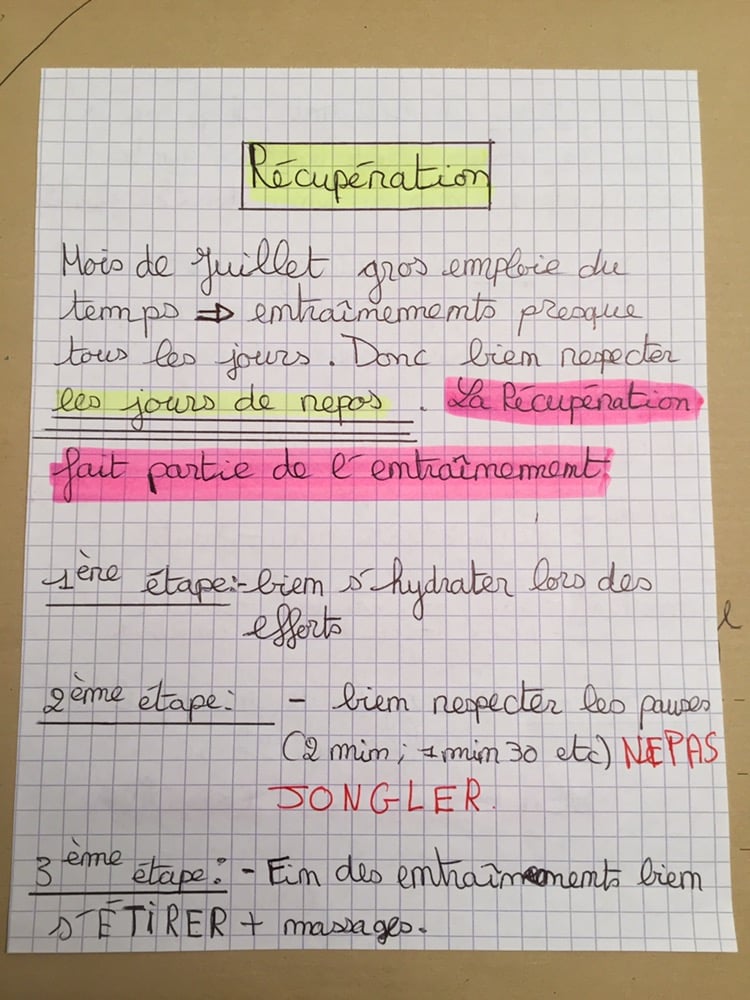 Récupération
Mois de Juillet gros emploie du
temps ⇒ entraînements presque
tous les jours. Donc bien respecter
les jours de repos. La Récupération
fait partie de l'entraînement.
1ère étape:-bien s'hydrater lors des
efforts
2ème étape: - bien respecter les pauses
(2 min; 1 min 30 etc) NE PAS
JONGLER.
3ème étape: - Fin des entraînements bien
s'ÉTIRER + massages.